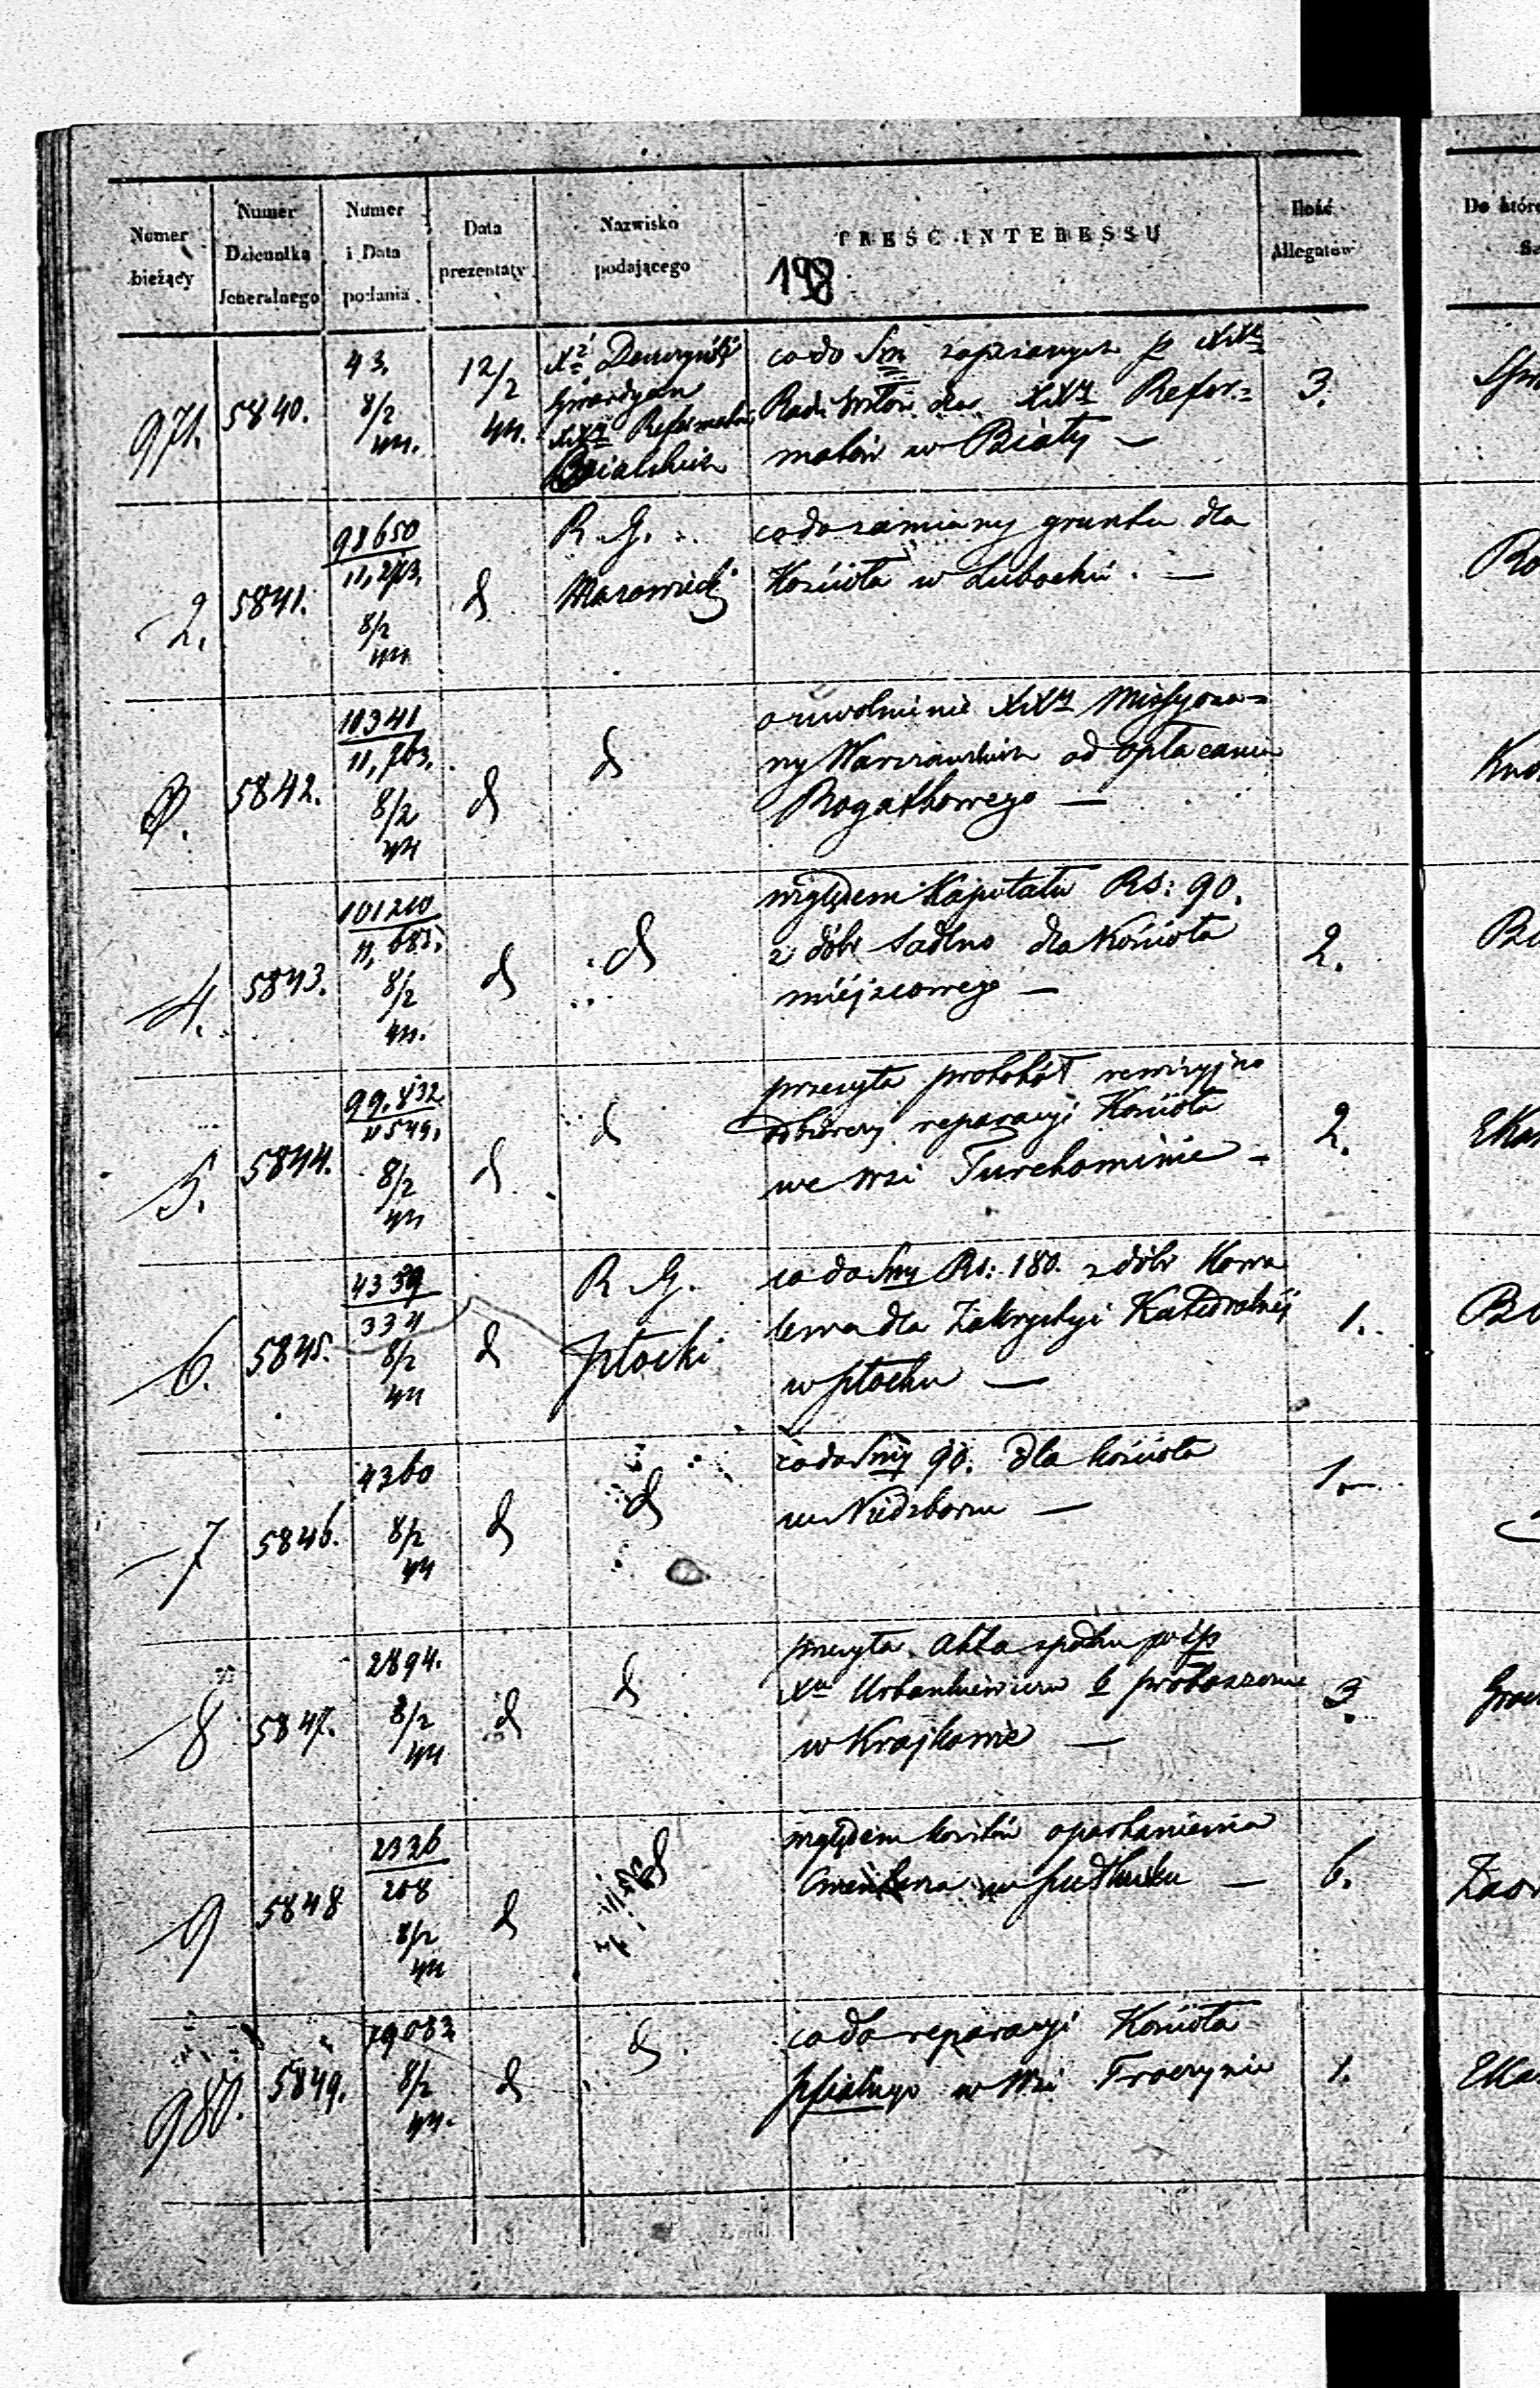 Numer bieżący
Numer Dziennika Jeneralnego
Numer i Data podania
Data prezentaty
Nazwisko podającego
TREŚĆ INTERESSU
Ilość Allegatów
198
971. 5840. 43. 8/2 44. 12/2 44. Gwardyan Bialskich 3.
co do Sm zapisanych p XX
dla XX Refor=
matów w Biały —
2. 5841. 98650 8/2 44 d R. G. Mazowiecki
co do zamiany gruntu dla
Kościoła w Lubochni. —
3. 5842. 10341 11,763. 8/2 44 d d
o uwolnienie XX Missyona=
rzy Warszawskich od opłacania
Rogatkowego —
4. 5843. 101210 8/2 44. d d 2.
względem Kapitału Rs: 90.
z dóbr Sadlno dla Kościoła
miejscowego —
5. 5844. 8/2 44 d d 2.
przesyła protokół rewizyjno
odbiorczy reparacyi Kościoła
we wsi Turchominie —
6. 5845. 4339 334 8/2 44 d R. G. Płocki 1.
co do Smy Rs: 180. z dóbr Kowa
lewa dla Zakrystyi Katedralnéj
w Płocku —
7 5846. 4360 8/2 44 d d 1.
co do Smy 90. dla kościoła
w Niedzborzu —
8 5847. 2894. 8/2 44 d d 3.
przesyła akta spadku po śp
Xu Urbankiewiczu b proboszczu
w Krajkowie —
9 5848 2326 208 8/2 44 d d 6.
względem kosztów oparkanienia
Cmentarza w Pułtusku —
980. 5849. 8/2 44. d d 1.
co do reparacyi Kościoła
w Wsi Troczynie